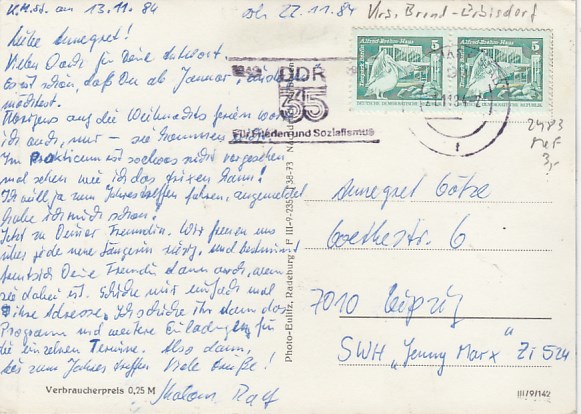 K.M.St. am 13.11.84
Liebe Annegret!
Vielen Dank für Deine Antwort.
Es ist schön, daß Du ab Januar
möchtest.
Übrigens auf die Weihnachtsferien
ich auch, nur – sie kommen
Im Praktikum ist sowas nicht vorgesehen
mal sehen wie ich das fixen kann!
Ich will ja zum Jahrestreffen fahren, angemeldet
habe ich mich schon!
Jetzt zu Deiner Freundin. Wir freuen uns
über jede neue Sängerin riesig, und bestimmt
Deine Freundin dann auch, wenn
sie dabei ist. Schicke mir einfach mal
ihre Adresse. Ich schicke ihr dann das
Programm und weitere Einladungen für
die einzelnen Termine. Also dann,
bis zum Jahrestreffen viele Grüße!
Ralf
Verbraucherpreis 0,25 M
Photo-Eulitz, Radeburg P III-9-235
22.11.84
DDR
35
Für Frieden und Sozialismus
5
Alfred-Brehm-Haus
DEUTSCHE DEMOKRATISCHE REPUBLIK
5
Alfred-Brehm-Haus
2483
3,-
Annegret Götze
Goethestr. 6
7010 Leipzig
SWH „Jenny Marx" Zi 524
III/9/142